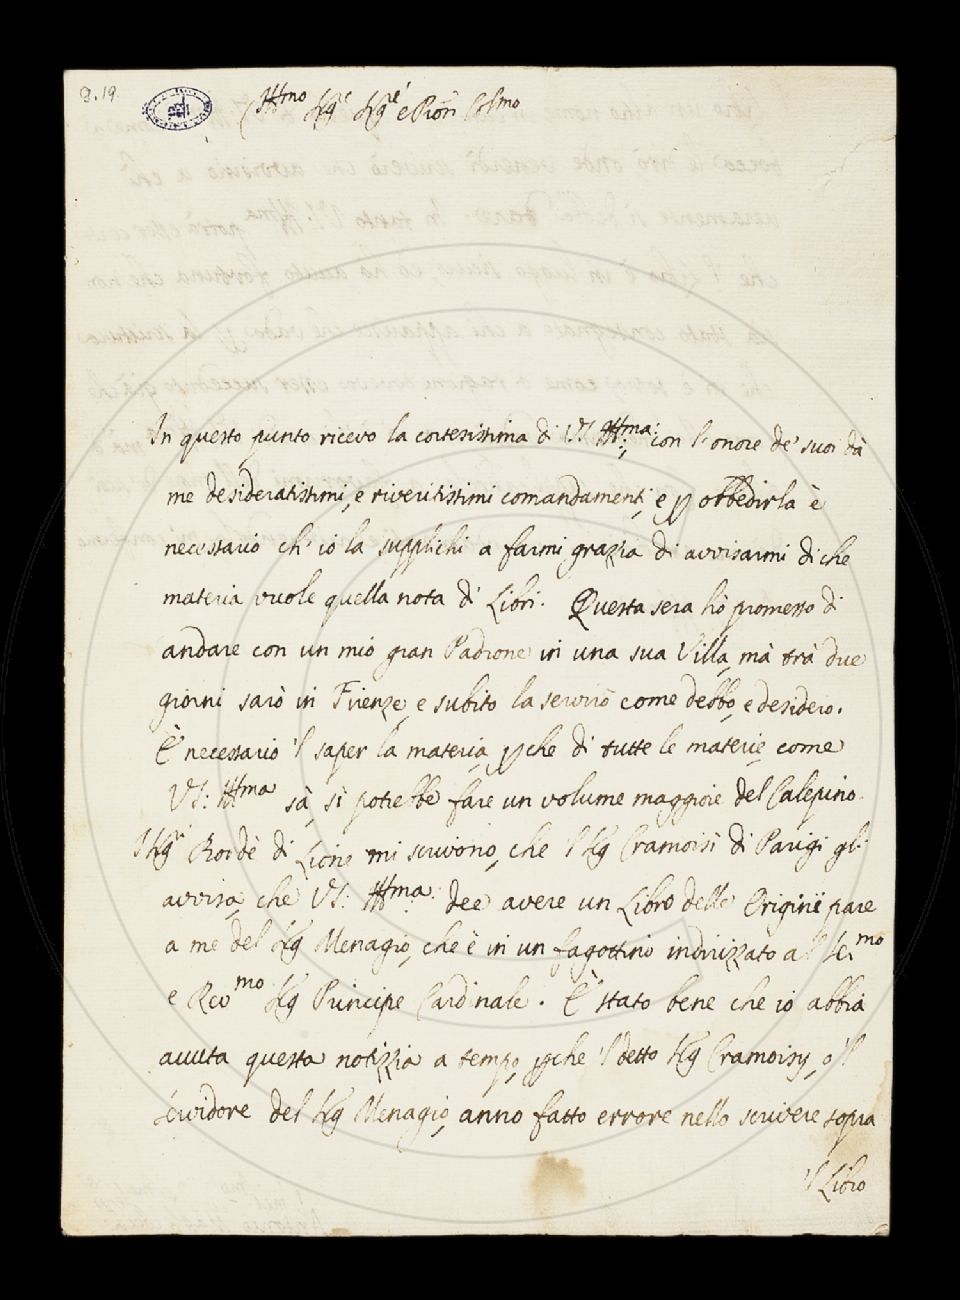 2.19
Ill.mo Sig.re Sig.re e Pron Col.mo
In questo punto ricevo la cortesissima di VS Ill.ma: con l'onore de' suoi da
me desideratissimi, e riveritissimi comandamenti, e p obbedirla è
necessario ch' io la supplichi a farmi grazzia di avvisarmi di che
materia vuole quella nota di Libri. Questa sera hò promesso di
andare con un mio gran Padrone in una sua Villa, mà trà due
giorni sarò in Firenze, e subito la servirò come debbo, e desidero.
È necessario 'l saper la materia, pche di tutte le materie, come
VS: Ill.ma sà, si potrebbe fare un volume maggiore del Calepino.
I Sig.ri Bordè di Lione mi scrivono, che 'l Sig Cramoisi di Parigi gli
avvisa, che VS: Ill.ma: dee avere un Libro delle Origini pare
a me del Sig Menagio, che è in un fagottino indirizzato al Ser.mo
e Rev.mo Sig Principe Cardinale. È stato bene che io abbia
avuta questa notizzia a tempo, pche 'l detto Sig Cramoisy, o 'l
Servidore del Sig Menagio, anno fatto errore nello scrivere sopra
'l Libro